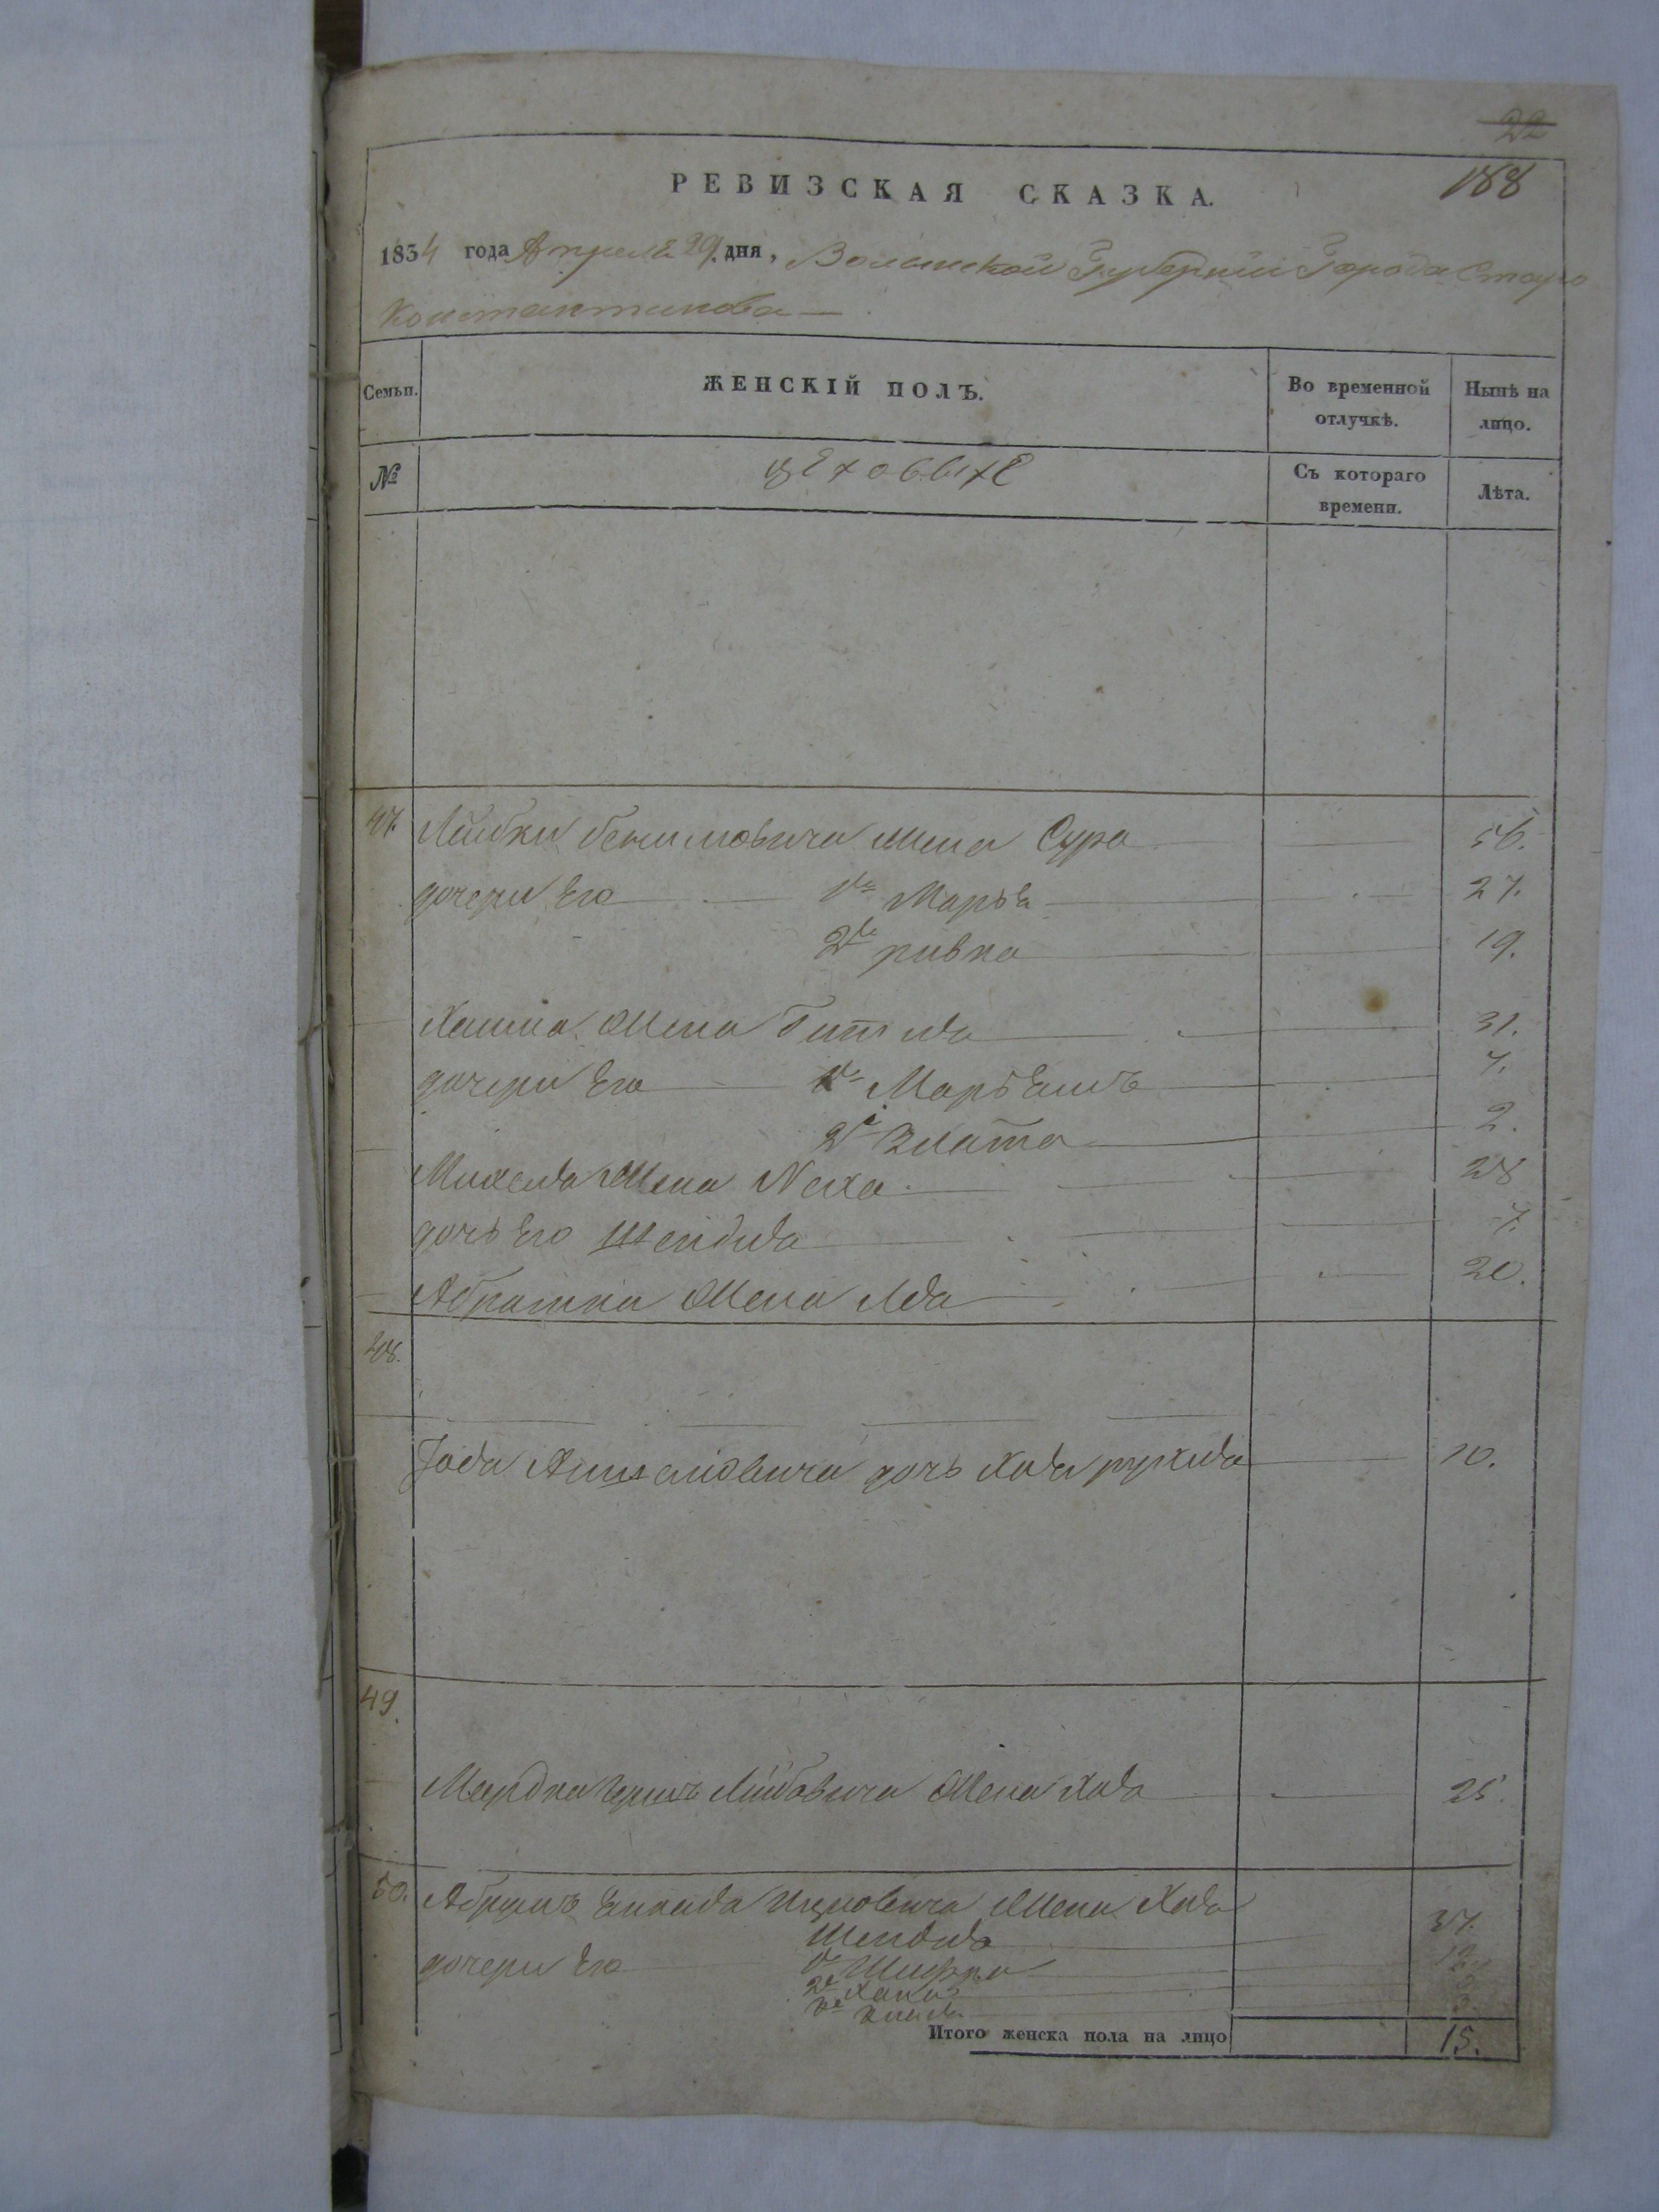 22
188
РЕВИЗСКАЯ СКАЗКА.
1834 года Апреля 29 дня, Волынской Губернии Города Старо
Константинова
Семьи. ЖЕНСКІЙ ПОЛЪ. Во временной отлучкѣ. Нынѣ на лицо.
№ цеховыхъ Съ котораго времени. Лѣта.
47. Лейбки жена Сура 56.
дочери Его 1я Марья 27.
2я ривка 19.
Хаима жена Гитля 31.
дочери Его 1я 7.
2я Злата 2.
Михеля жена Неха 28
дочь Его Шейдля 7.
Абрашки жена Лея 20.
48.
дочь Хая рухля 10.
49.
Мордка Герша Лейбовича жена Хая 25.
50. Абрумъ Ицковича жена Хая
Шейдля 37.
дочери Его 1я Шифра 12.
2я
3я 3.
Итого женска пола на лицо 15.